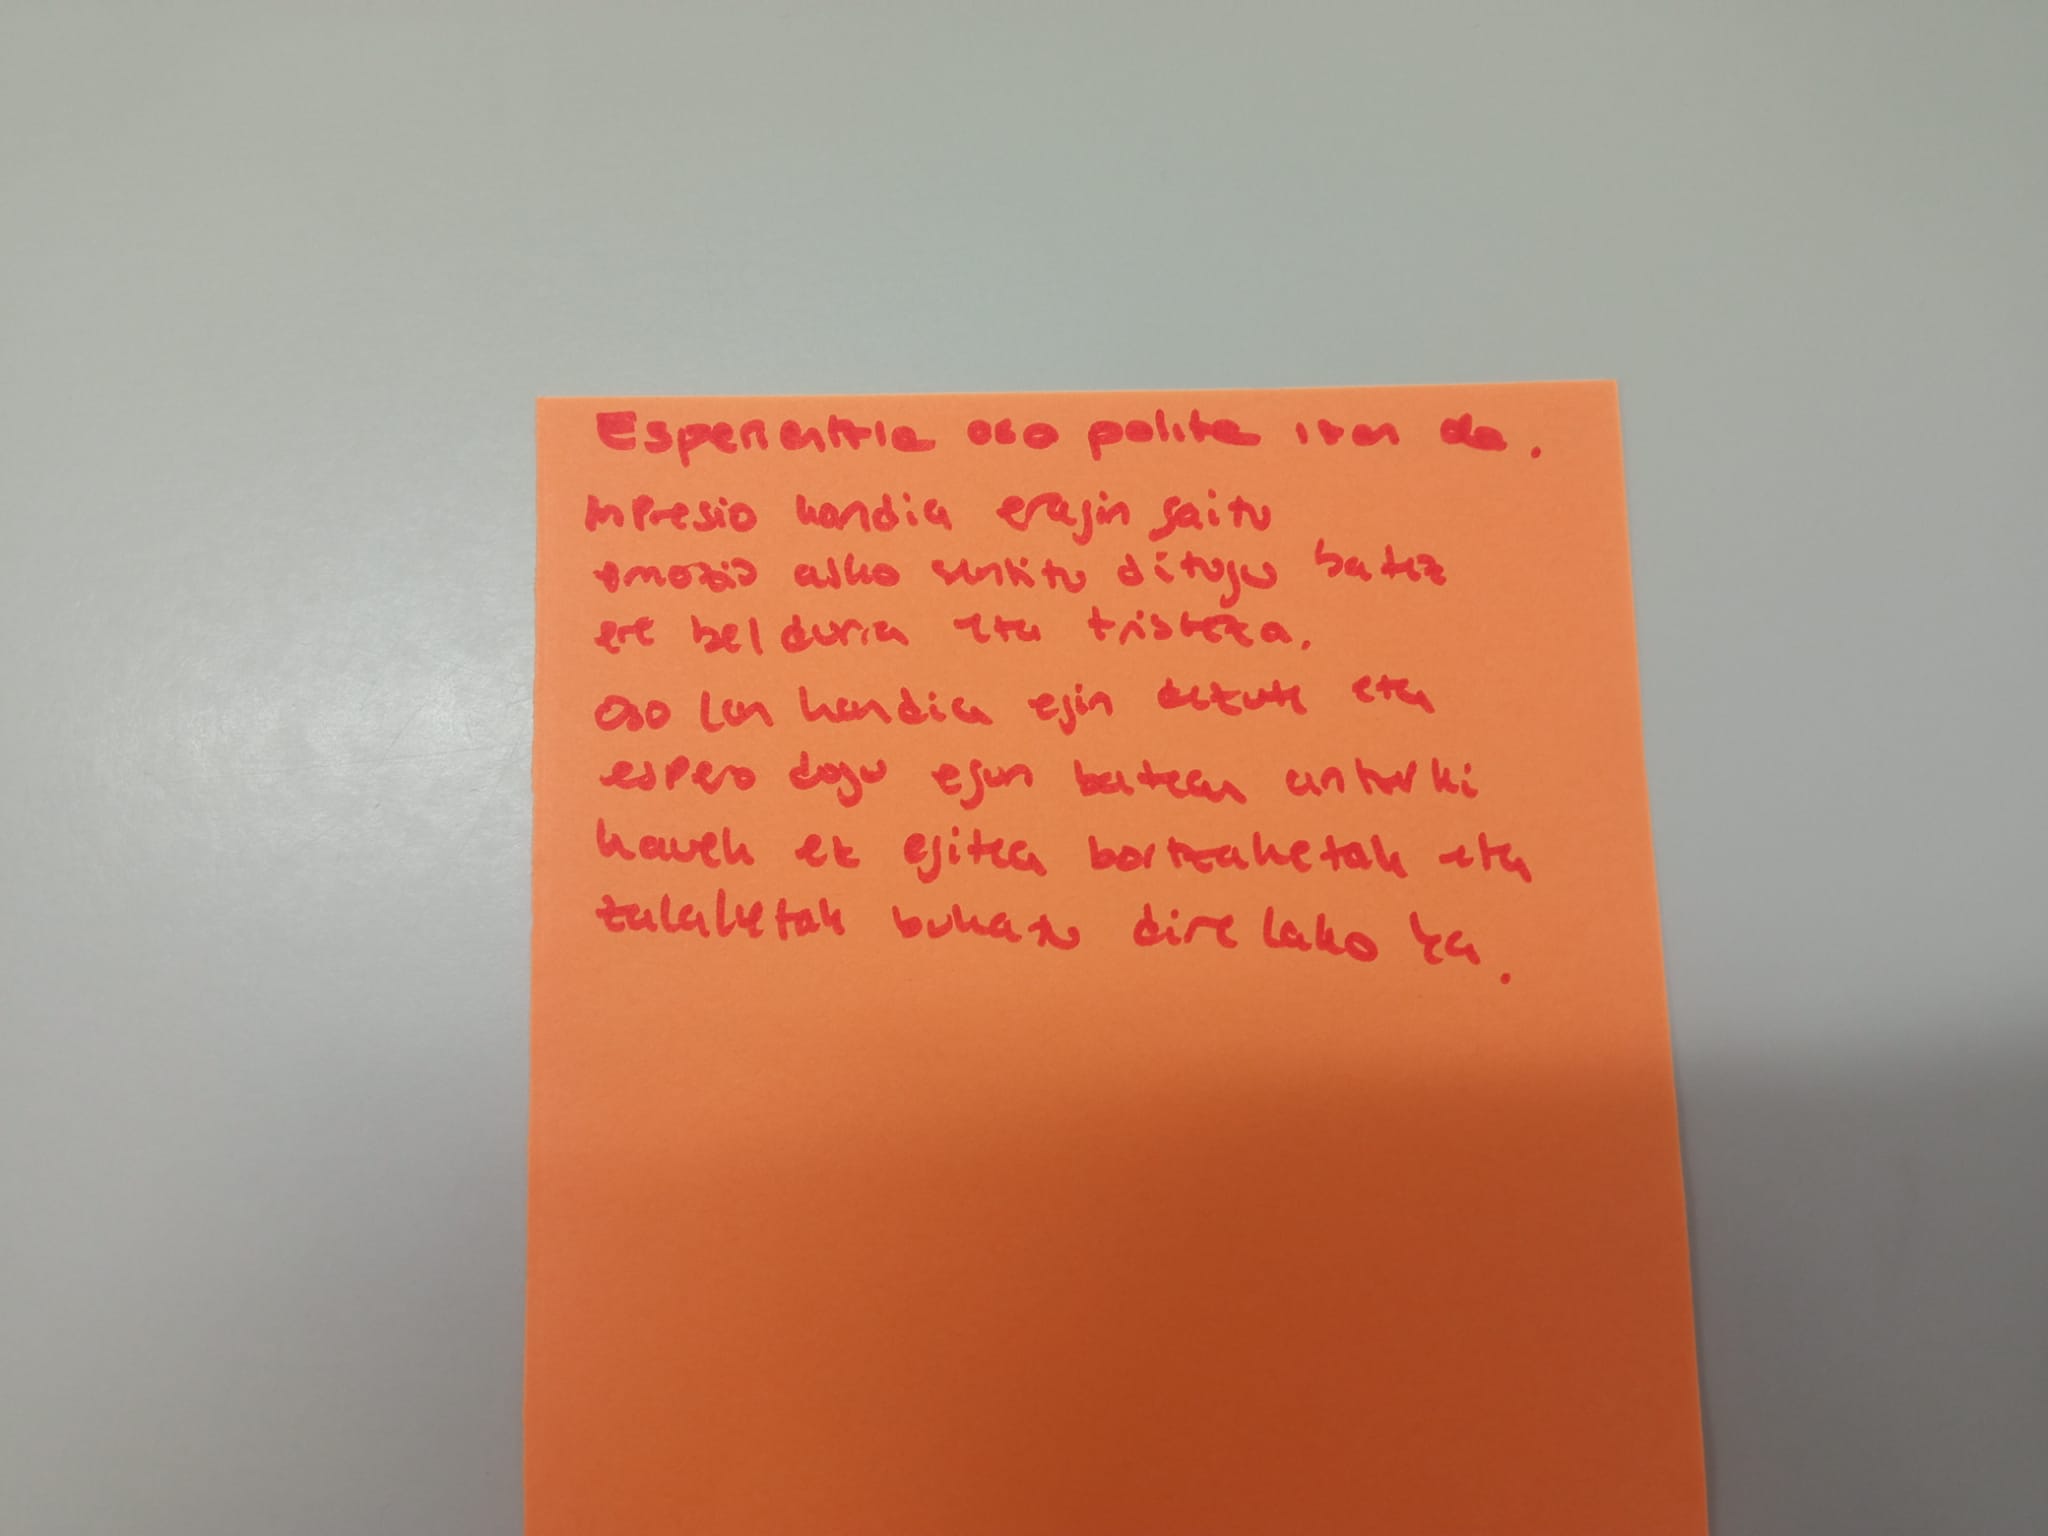 Esperientzia oso polita izan da.
Inpresio handia eragin gaitu
emozio asko sentitu ditugu batez
ere beldurra eta tristeza.
Oso lan handia egin dezute eta
espero dogu egun batean antzerki
hauek ez egitea bortzaketak eta
zalaketak bukatu direlako ta.